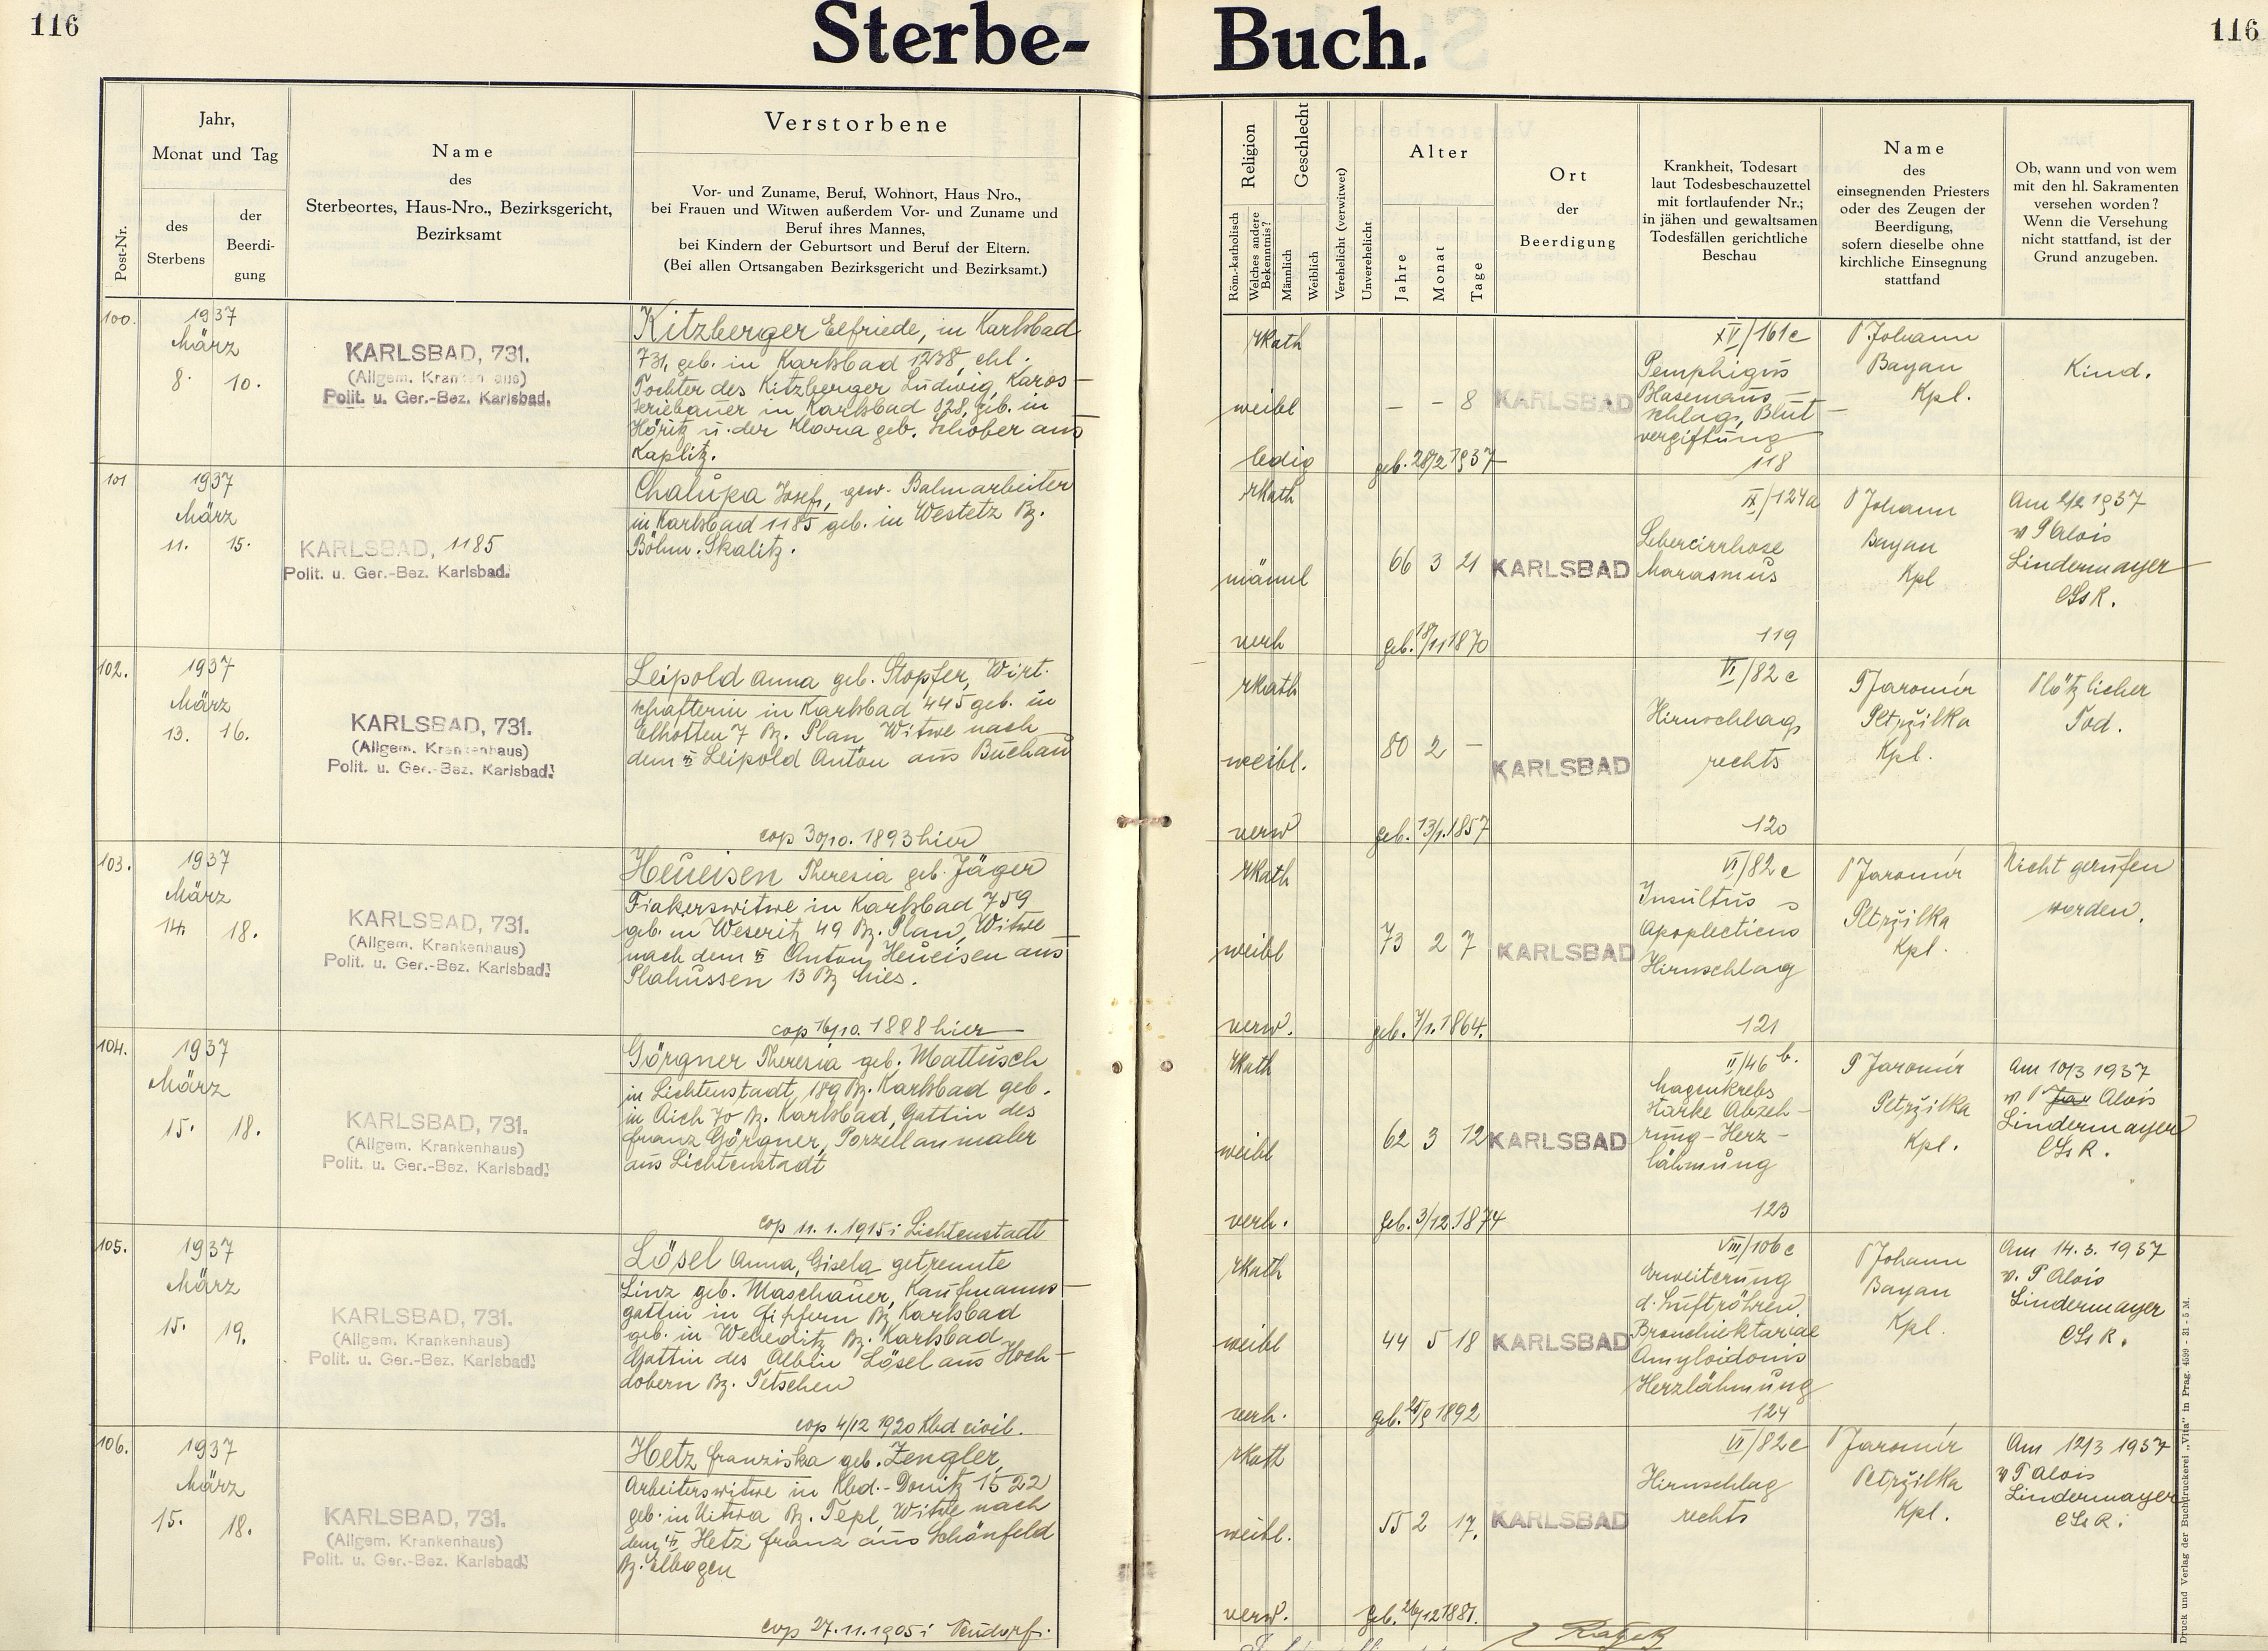 116
Sterbe-
Buch.
116
Post-Nr.
Jahr,
Monat und Tag
des
Sterbens
der
Beerdi-
gung
Name
des
Sterbeortes, Haus-Nro., Bezirksgericht,
Bezirksamt
Verstorbene
Vor- und Zuname, Beruf, Wohnort, Haus Nro.,
bei Frauen und Witwen außerdem Vor- und Zuname und
Beruf ihres Mannes,
bei Kindern der Geburtsort und Beruf der Eltern.
(Bei allen Ortsangaben Bezirksgericht und Bezirksamt.)
Religion
Röm.-katholisch
Welches andere
Bekenntnis?
Geschlecht
Männlich
Weiblich
Verehelicht (verwitwet)
Unverehelicht
Alter
Jahre
Monat
Tage
Ort
der
Beerdigung
Krankheit, Todesart
laut Todesbeschauzettel
mit fortlaufender Nr.;
in jähen und gewaltsamen
Todesfällen gerichtliche
Beschau
Name
des
einsegnenden Priesters
oder des Zeugen der
Beerdigung,
sofern dieselbe ohne
kirchliche Einsegnung
stattfand
Ob, wann und von wem
mit den hl. Sakramenten
versehen worden?
Wenn die Versehung
nicht stattfand, ist der
Grund anzugeben.
100.
1937
März
8. 10.
KARLSBAD, 731.
(Allgem. Krankenhaus)
Polit. u. Ger.-Bez. Karlsbad.
Kitzberger Elfriede, in Karlsbad
731, geb. in Karlsbad 1238, ehl.
Tochter des Kitzberger Ludwig, Karos-
seriebauer in Karlsbad 828, geb. in
Höritz u. der Maria geb. Schober aus
Kaplitz.
rkath
weibl
ledig
- - 8
geb. 28/2 1937
KARLSBAD
XV/161c
Pemphigus
Blasenaus-
schlag, Blut-
vergiftung
118
P Johann
Bayan
Kpl.
Kind.
101
1937
März
11. 15.
KARLSBAD, 1185
Polit. u. Ger.-Bez. Karlsbad.
Chalupa Josef, gew. Bahnarbeiter
in Karlsbad 1185 geb. in Westetz Bz.
Böhm. Skalitz.
rkath
männl
verh
66 3 21
geb. 18/11 1870
KARLSBAD
IX/124a
Lebercirrhose
Marasmus
119
P Johann
Bayan
Kpl
Am 2/2 1937
v P Alois
Lindermayer
CSsR.
102.
1937
März
13. 16.
KARLSBAD, 731.
(Allgem. Krankenhaus)
Polit. u. Ger.-Bez. Karlsbad.
Leipold Anna geb. Stopfer, Wirt-
schafterin in Karlsbad 445 geb. in
Elhotten 7 Bz. Plan, Witwe nach
dem Leipold Anton aus Buchau
cop 30/10. 1893 hier
rkath
weibl.
verw
80 2 -
geb. 13/1. 1857
KARLSBAD
VI/82c
Hirnschlag
rechts
120
P Jaromír
Petržilka
Kpl.
Plötzlicher
Tod.
103.
1937
März
14. 18.
KARLSBAD, 731.
(Allgem. Krankenhaus)
Polit. u. Ger.-Bez. Karlsbad.
Heueisen Theresia geb. Jäger
Fiakerswitwe in Karlsbad 759
geb. in Weseritz 49 Bz. Plan, Witwe
nach dem Anton Heueisen aus
Plahussen 13 Bz Mies.
cop 16/10. 1888 hier
rkath
weibl
verw.
73 2 7
geb. 7/1. 1864.
KARLSBAD
VI/82c
Insultus
apoplecticus
Hirnschlag
121
P Jaromír
Petržilka
Kpl.
Nicht gerufen
worden.
104.
1937
März
15. 18.
KARLSBAD, 731.
(Allgem. Krankenhaus)
Polit. u. Ger.-Bez. Karlsbad.
Görgner Theresia geb. Mattusch
in Lichtenstadt, 189 Bz. Karlsbad geb.
in Aich 70 Bz. Karlsbad, Gattin des
Franz Görgner, Porzellanmaler
aus Lichtenstadt
cop 11. 1. 1915 i Lichtenstadt
rkath
weibl
verh.
62 3 12
geb. 3/12. 1874
KARLSBAD
II/46 b.
Magenkrebs
starke Abzeh-
rung - Herz-
lähmung
123
P Jaromír
Petržilka
Kpl.
Am 10/3 1937
v. P Jar Alois
Lindermayer
CSsR.
105.
1937
März
15. 19.
KARLSBAD, 731.
(Allgem. Krankenhaus)
Polit. u. Ger.-Bez. Karlsbad.
Lösel Anna, Gisela getrennte
Linz geb. Maschauer, Kaufmanns-
gattin in Gfpfern Bz Karlsbad
geb. in Weheditz Bz. Karlsbad
Gattin des Albin Lösel aus Hoch-
dobern Bz. Tetschen
cop 4/12 1920 Kbd civil.
rkath
weibl
verh.
44 5 18
KARLSBAD
VIII/106c
Erweiterung
d. Luftröhren.
Bronchiektasiae
Amyloidosis
Herzlähmung
124
P Johann
Bayan
Kpl.
Am 14. 3. 1937
v. P Alois
Lindermayer
CSsR.
106.
1937
März
15. 18.
KARLSBAD, 731.
(Allgem. Krankenhaus)
Polit. u. Ger.-Bez. Karlsbad.
Hetz Franziska geb. Zengler,
Arbeiterswitwe in Kbd.-Donitz 1522
geb. in Uitwa Bz. Tepl, Witwe nach
dem Hetz Franz aus Schönfeld
Bz. Elbogen
cop 27. 11. 1905 i Neudorf.
rkath
weibl.
verw.
55 2 17.
geb. 26/12 1881.
KARLSBAD
VI/82c
Hirnschlag
rechts
P Jaromír
Petržilka
Kpl.
Am 12/3 1937
v P Alois
Lindermayer
CSsR.
Druck und Verlag der Buchdruckerei „Vita" in Prag. 4599 - 31 - 5 M.